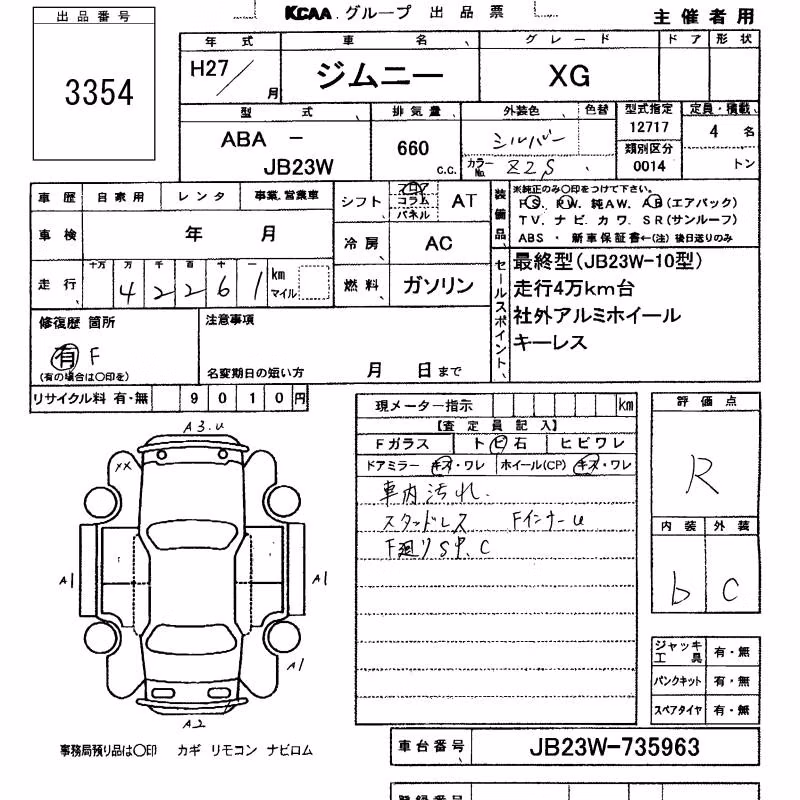 出品番号
KCAA グループ 出品票
主催者用
3354
年式 車名、 グレード ドア 形状
H27/月 ジムニー XG
型式、 排気量、 外装色 色替 型式指定 定員・積載、
ABA - JB23W 660 c.c. シルバー 12717 4 名
カラーNo. Z2S 類別区分 0014 トン
車歴 自家用 レンタ 事業,営業車
シフト、 フロア コラム パネル AT
装備品、
※純正のみ○印をつけて下さい。
PS. PW. 純AW. AB(エアバック)
TV. ナビ. カワ. SR(サンルーフ)
ABS ・ 新車保証書←(注) 後日送りのみ
車検 年 月
冷房 AC
走行 十万 万 千 百 十 一
42261 km マイル
燃料、 ガソリン
セールスポイント、
最終型(JB23W-10型)
走行4万km台
社外アルミホイール
キーレス
修復歴 箇所
有 F
(有の場合は○印を)
注意事項
名変期日の短い方 月 日まで
リサイクル料 有・無 9010円
現メーター指示 km
【査定員記入】
Fガラス トビ石 ヒビワレ
ドアミラー キズ・ワレ ホイール(CP) キズ・ワレ
車内汚れ.
スタッドレス Fインナーu
F廻りSP.C
評価点
R
内装 外装
b C
A3.u
XX
A1
A1
A1
A2
ジャッキ工具 有・無
パンクキット 有・無
スペアタイヤ 有・無
事務局預り品は○印 カギ リモコン ナビロム
車台番号 JB23W-735963
登録番号